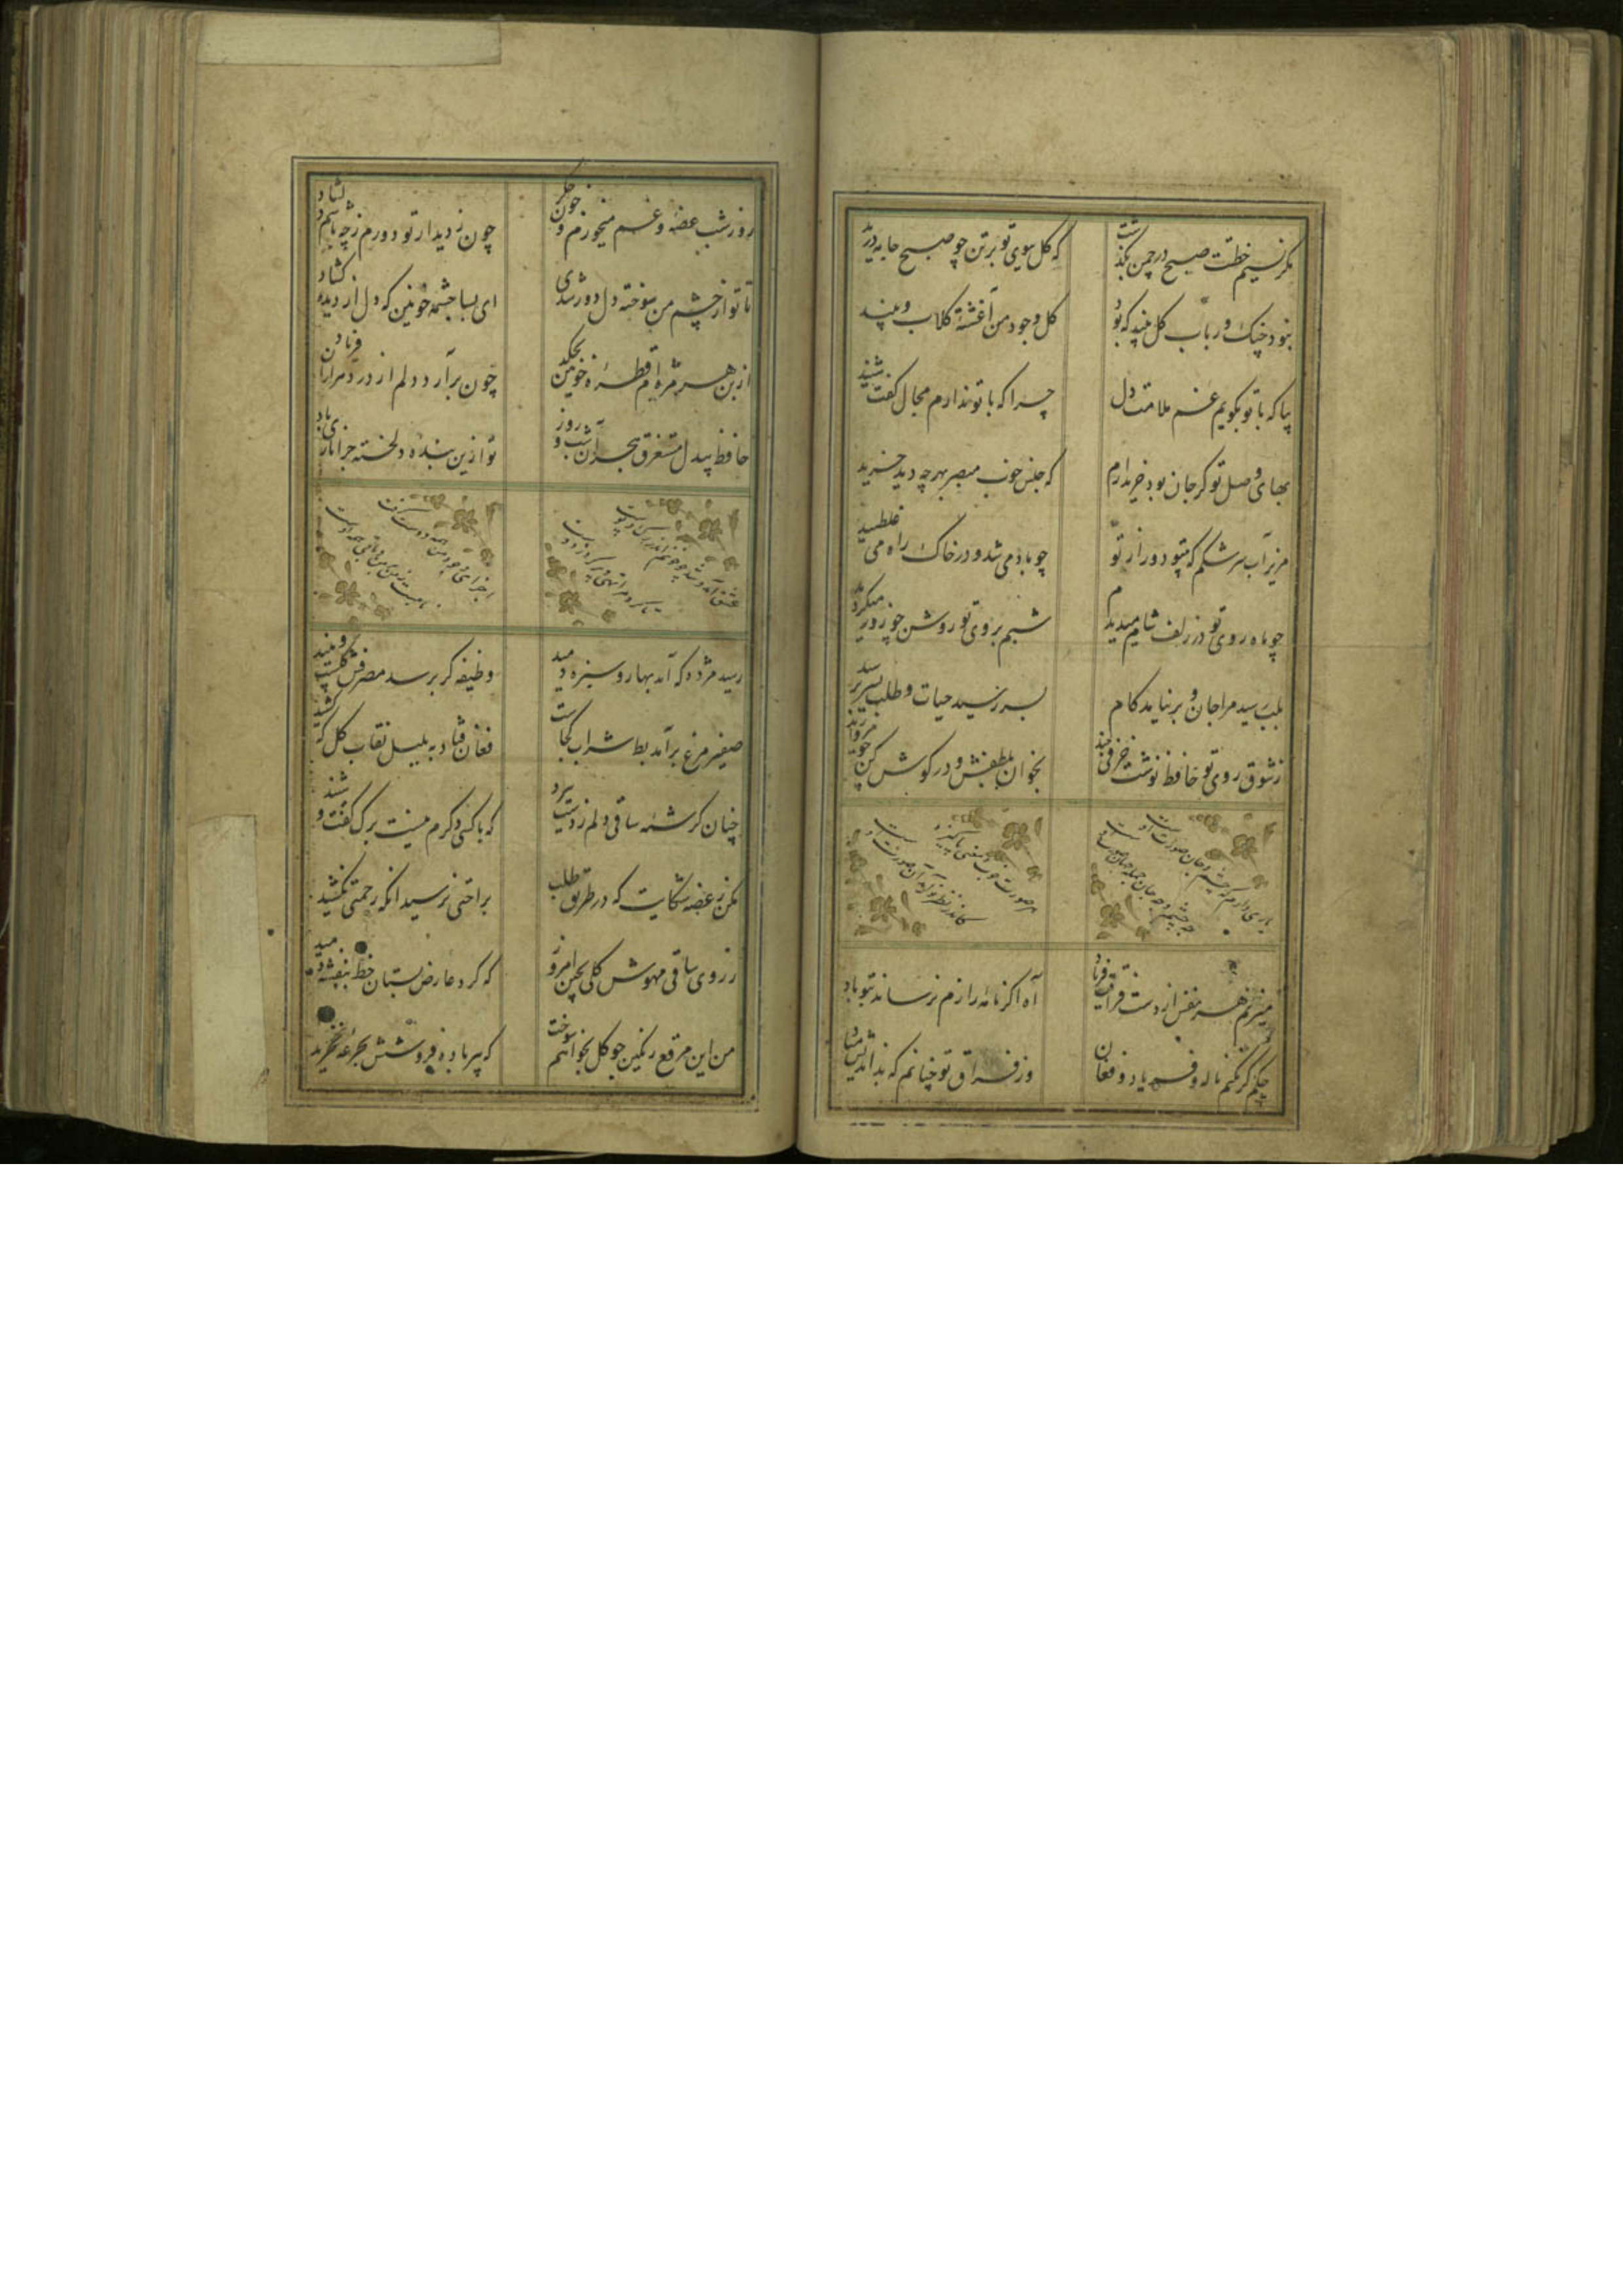 مکر نسیم خطت صبح در چمن بگذشت
که کل ببوی تو بر تن چو صبح جامه درید
نبود چنک و رباب و کل و نبید که بود
کل وجود من آغشتهٔ کلاب و نبید
بیا که با تو بکویم غم ملامت دل
چرا که با تو ندارم مجال کفت و شنید
بهای وصل تو کر جان بود خریدارم
که جنس خوب مبصر بهرچه دید خرید
مریز آب سرشکم که بیتو دور از تو
چو باد می شد و در خاک راه می غلطید
چو ماه روی تو در زلف شام میدیدم
شبم بروی تو روشن چو روز میکردید
بلب رسید مرا جان و برنیامد کام
بسر رسید حیات و طلب بسر نرسید
ز شوق روی تو حافظ نوشت حرفی چند
بخوان بلطفش و در کوش کن چو مروارید
یاری دارم که جسم و جان صورت اوست
چه جسم و چه جان جمله جهان صورت اوست
هر صورت خوب و معنی پاکیزه
کاندر نظر تو آید آن صورت اوست
میزنم هر نفس از دست فراقت فریاد
آه اکر نالهٔ زارم نرساند بتو باد
چکنم کر نکنم ناله و فریاد و فغان
وز فراق تو چنانم که بداندیش مباد
روز و شب غصه و غم میخورم و خون جکر
چون ز دیدار تو دورم ز چه باشم دلشاد
تا تو از چشم من سوخته دل دور شدی
ای بسا چشمه خونین که دل از دیده کشاد
از بن هر مژه‌ام قطرهٔ خونین بچکد
چون برآرد دلم از درد مرارن فریاد
حافظ بیدل مستغرق هجران شب و روز
تو ازین بندهٔ دلخسته جرا ناری یاد
عشق آمد و شد چو خونم اندر رک و پوست
تا کرد مرا تهی و پر کرد ز دوست
اجزای وجود من همه دوست کرفت
نامیست ز من بر من و باقی همه اوست
رسید مژده که آمد بهار و سبزه دمید
وظیفه کر برسد مصرفش کلست و نبید
صفیر مرغ برآمد بط شراب کجاست
فغان فتاد به بلبل نقاب کل که کشید
چنان کرشمه ساقی دلم ز دست ببرد
که با کسی دکرم نیست برک کفت و شنید
مکن ز غصه شکایت که در طریق طلب
براحتی نرسید انکه زحمتی نکشید
ز روی ساقی مهوش کلی بچین امروز
که کرد عارض بستان خط بنفشه دمید
من این مرقع رنکین چو کل بخواهم سوخت
که پیر باده فروشش بجرعهٔ نخرید